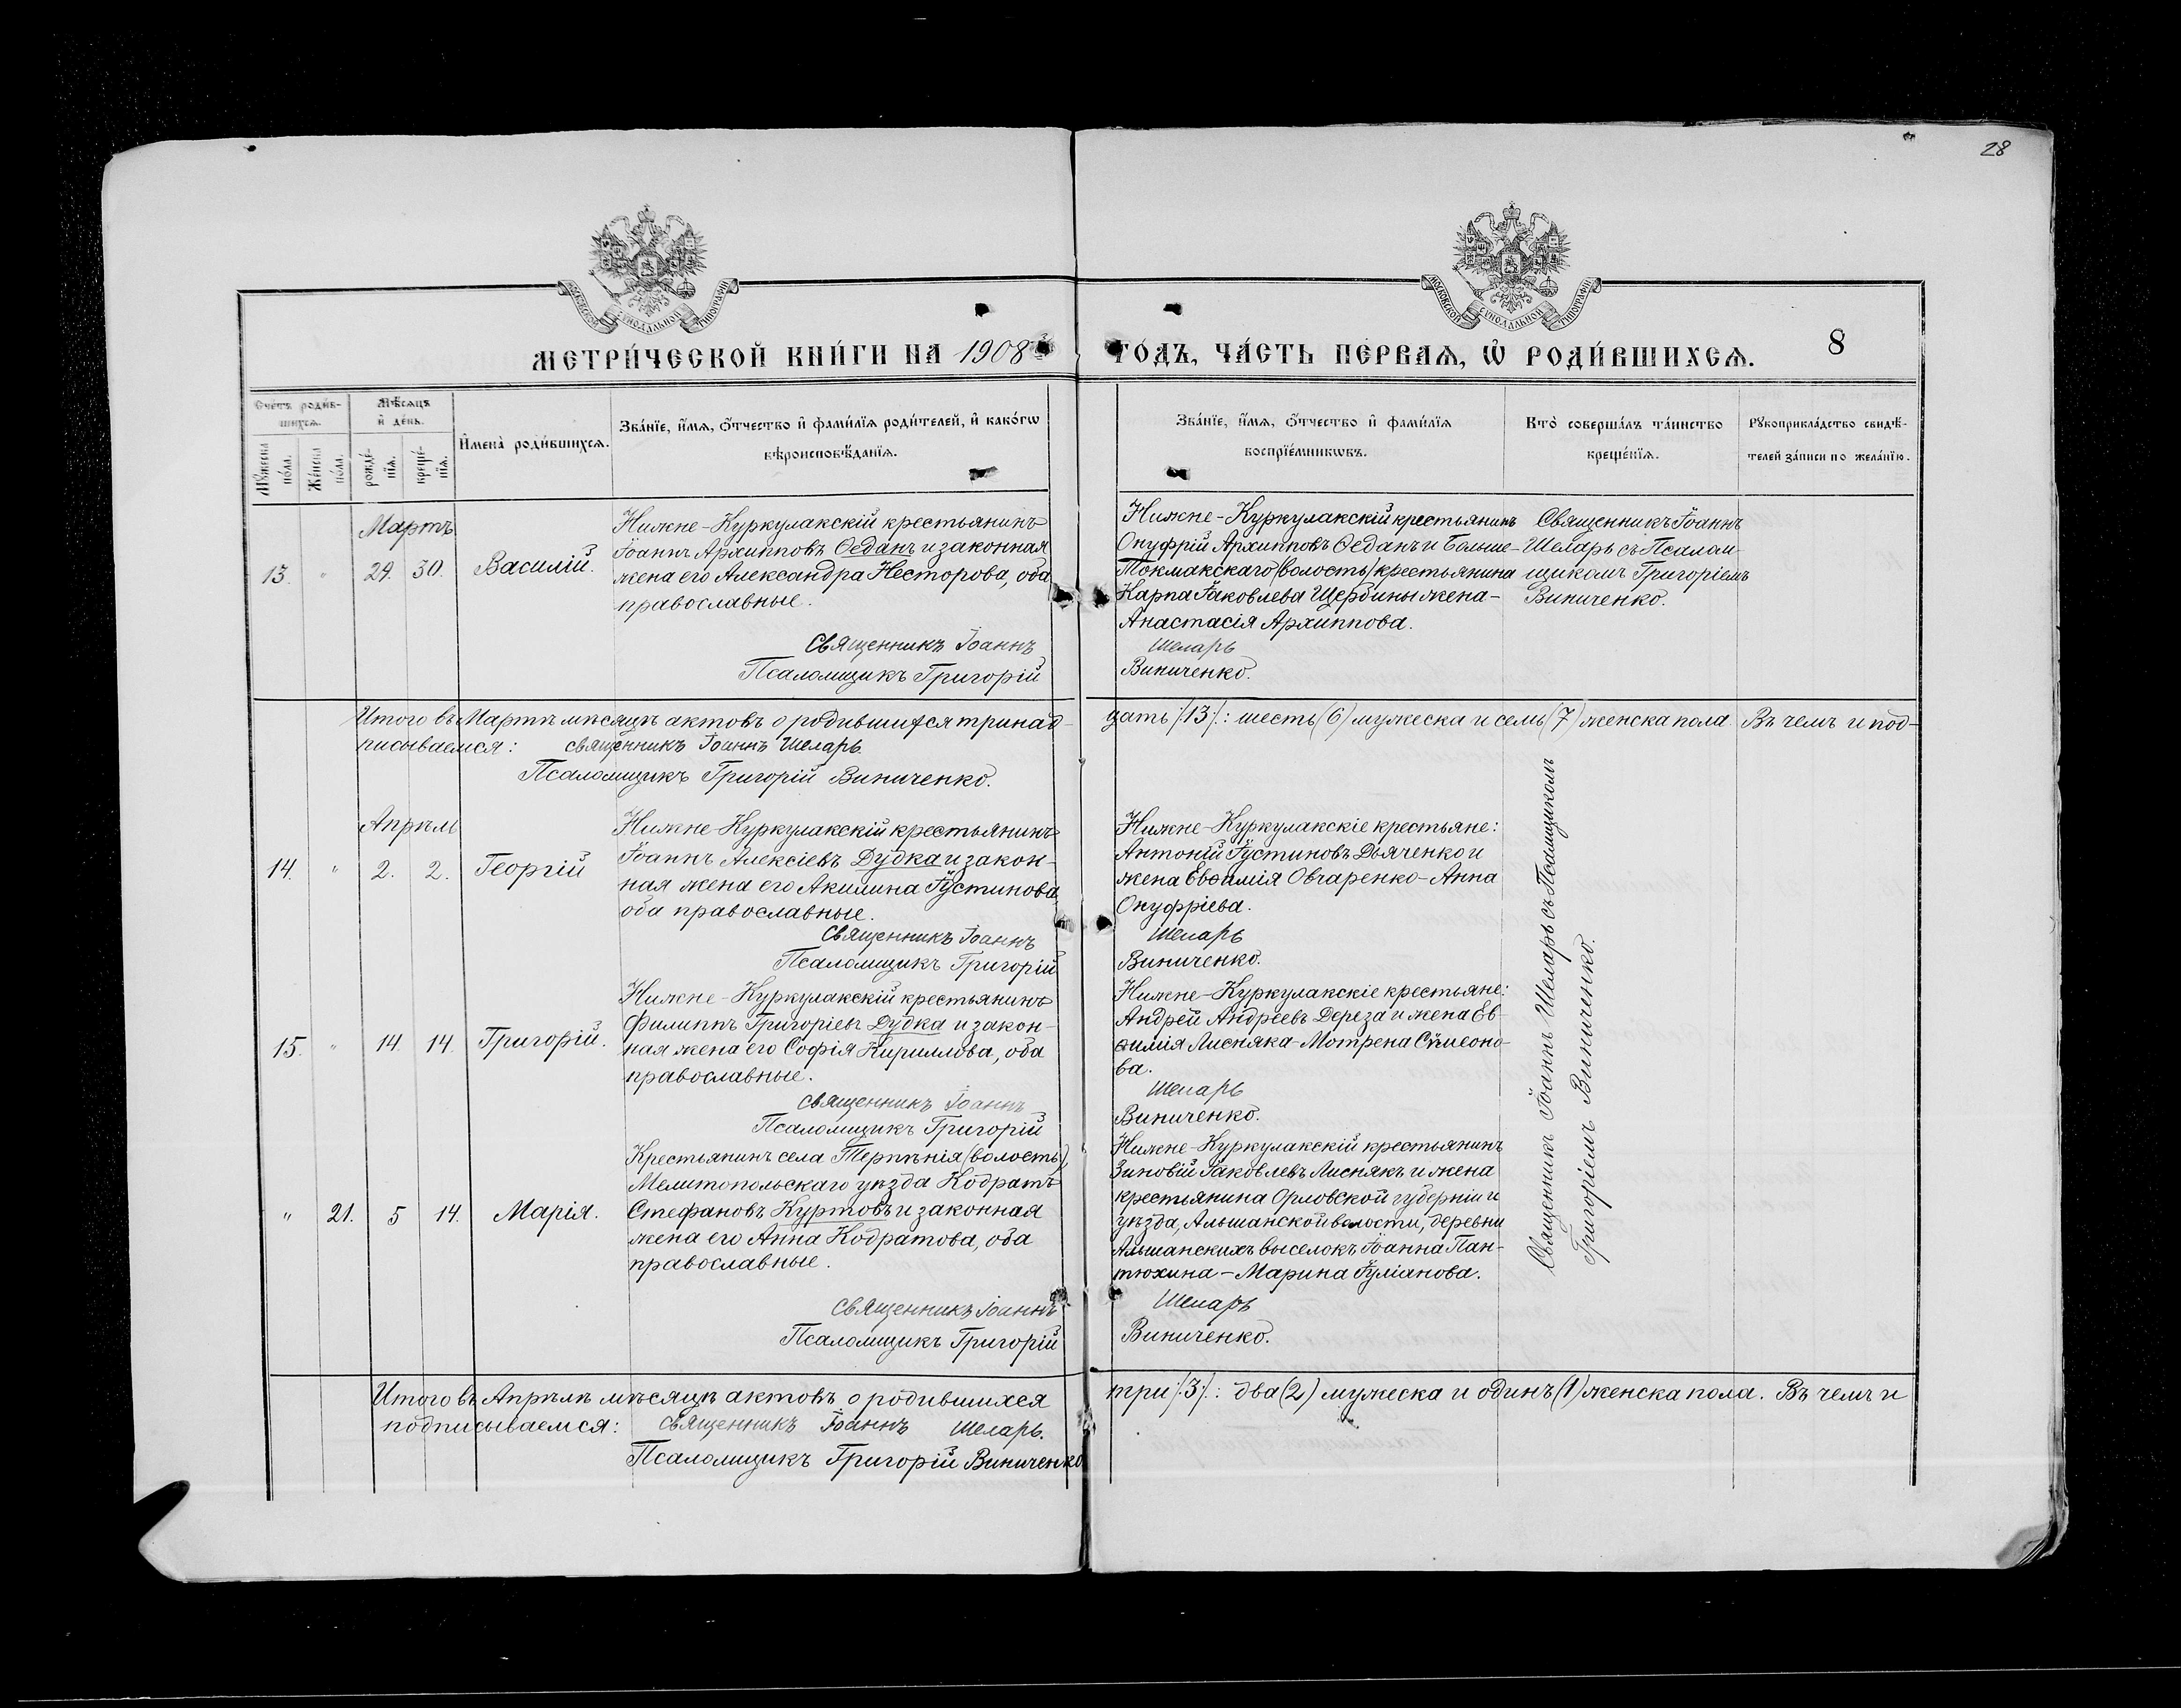 28
МОСКОВСКОЙ СѴНОДАЛЬНОЙ ТИПОГРАФІИ
МОСКОВСКОЙ СѴНОДАЛЬНОЙ ТИПОГРАФІИ
МЕТРИ́ЧЕСКОЙ КНИ́ГИ НА 1908 ГО́ДЪ, ЧА́СТЬ ПЕ́РВАѦ, Ѡ҆ РОДИ́ВШИХСѦ.
8
Сче́тъ роди́в-
шихсѧ.
Мѹ́жеска по́ла.
Же́нска по́ла.
Мѣ́сѧцъ
и҆ де́нь.
рожде́-нїѧ.
креще́-нїѧ.
И҆мена̀ роди́вшихсѧ.
Зва́нїе, и҆́мѧ, ѻ҆́тчество и҆ фами́лїѧ роди́телей, и҆ како́гѡ
вѣроисповѣ́данїѧ.
Зва́нїе, и҆́мѧ, ѻ҆́тчество и҆ фами́лїѧ
воспрїе́мникѡвъ.
Кто̀ соверша́лъ та́инство
креще́нїѧ.
Рѹкоприкла́дство свидѣ́-
телей за́писи по жела́нїю.
Мартъ
13. " 29. 30. Василій.
Нижне-Куркулакскій крестьянинъ
Іоаннъ Архипповъ Ѳеданъ и законная
жена его Александра Несторова, оба
православные.
Священникъ Іоаннъ
Псаломщикъ Григорій
Нижне-Куркулакскій крестьянинъ
Онуфрій Архипповъ Ѳеданъ и Больше-
Токмакскаго (волость) крестьянина
Карпа Іаковлева Щербины жена-
Анастасія Архиппова.
Шеларь
Виниченко.
Священникъ Іоаннъ
Шеларь съ Псалом-
щикомъ Григоріемъ
Виниченко.
Итого въ Мартѣ мѣсяцѣ актовъ о родившихся тринад-
цать /:13/: шесть (6) мужеска и семь (7) женска пола Въ чемъ и под-
писываемся: священникъ Іоаннъ Шеларь.
Псаломщикъ Григорій Виниченко.
Апрѣль
14. " 2. 2. Георгій
Нижне-Куркулакскій крестьянинъ
Іоаннъ Алексіевъ Дудка и закон-
ная жена его Акилина Іустинова,
оба православные.
Священникъ Іоаннъ
Псаломщикъ Григорій
Нижне-Куркулакскіе крестьяне:
Антоній Іустиновъ Дьяченко и
жена Евѳимія Овчаренко-Анна
Онуфріева.
Шеларь
Виниченко.
15. " 14. 14. Григорій.
Нижне-Куркулакскій крестьянинъ
Филиппъ Григоріевъ Дудка и закон-
ная жена его Софія Кириллова, оба
православные.
священникъ Іоаннъ
Псаломщикъ Григорій
Нижне-Куркулакскіе крестьяне:
Андрей Андреевъ Дереза и жена Ев-
ѳимія Лисняка-Мотрена Сѵмеоно-
ва.
Шеларь
Виниченко.
" 21. 5 14. Марія.
Крестьянинъ села Терпѣнія (волость),
Мелитопольскаго уѣзда Кодратъ
Стефановъ Куртовъ и законная
жена его Анна Кодратова, оба
православные.
Священникъ Іоаннъ
Псаломщикъ Григорій
Нижне-Куркулакскій крестьянинъ
Зиновій Іаковлевъ Лиснякъ и жена
крестьянина Орловской губерніи и
уѣзда, Альшанской волости, деревни
Альшанскихъ выселокъ Іоанна Пан-
тюхина-Марина Іуліанова.
Шеларь
Виниченко.
Священникъ Іоаннъ Шеларь съ Псаломщикомъ
Григоріемъ Виниченко.
Итого въ Апрѣлѣ мѣсяцѣ актовъ о родившихся
три /:3/: два (2) мужеска и одинъ (1) женска пола. Въ чемъ и
подписываемся: священникъ Іоаннъ Шеларь.
Псаломщикъ Григорій Виниченко